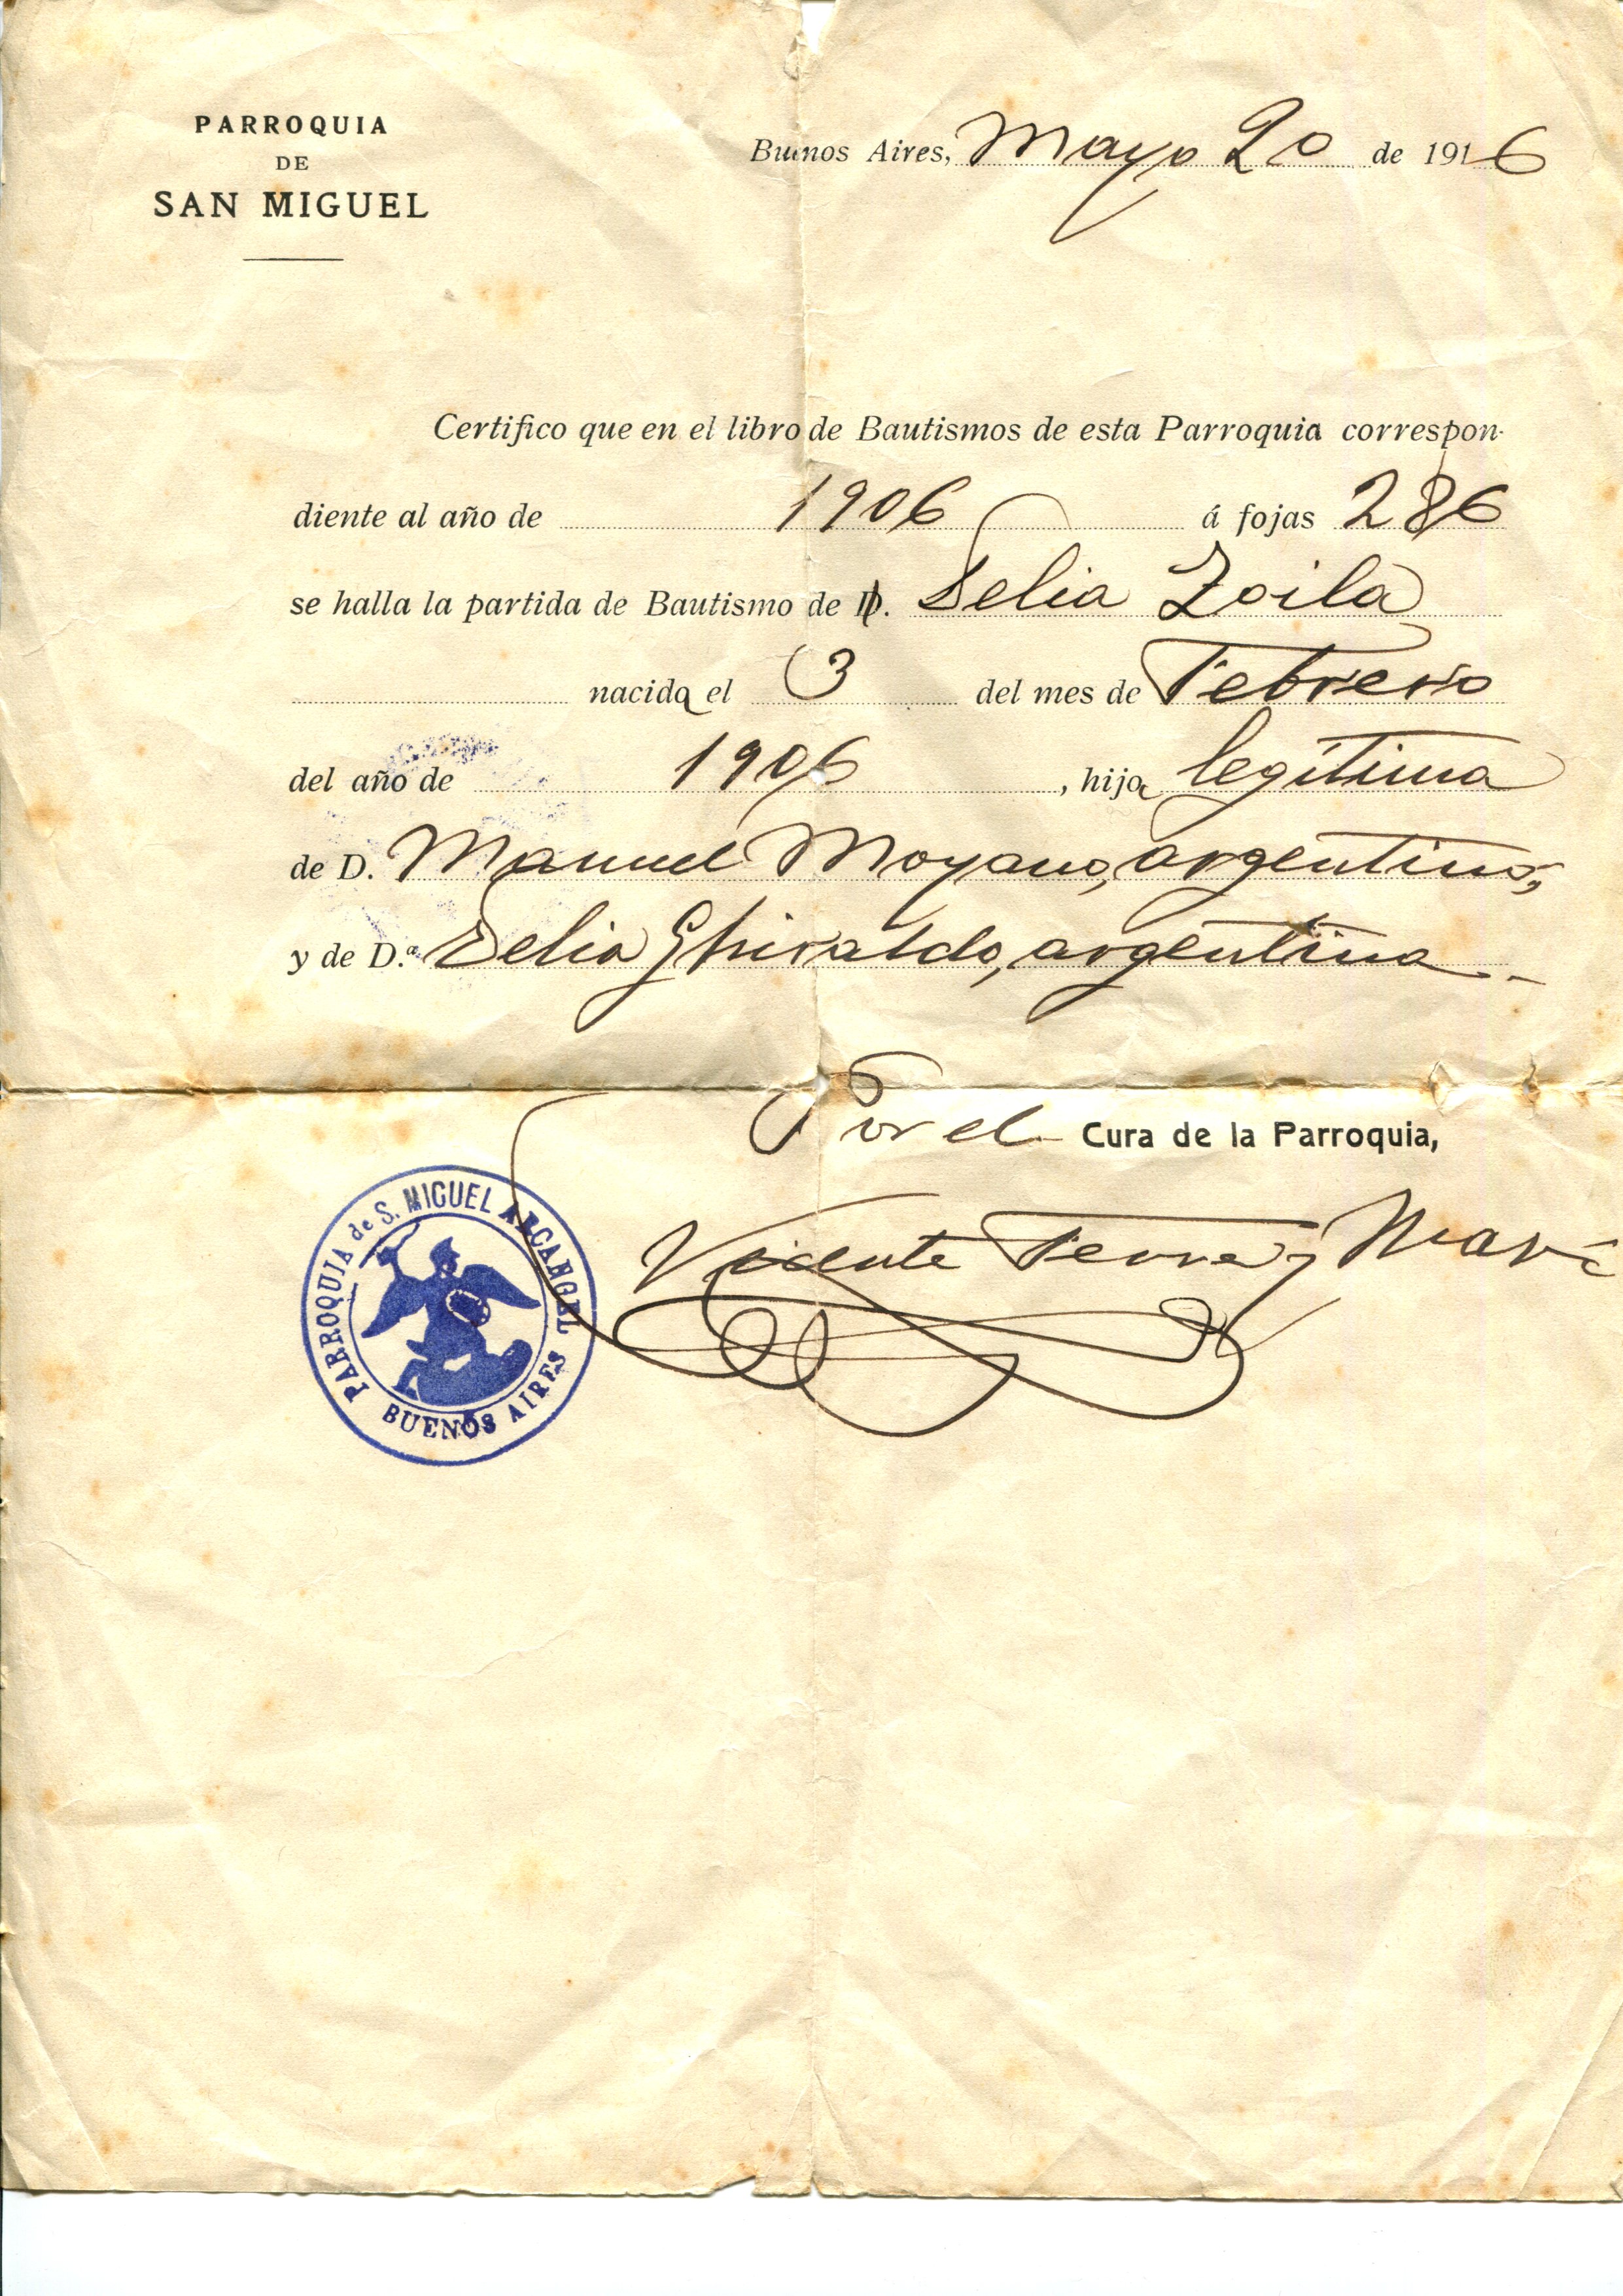 PARROQUIA
DE
SAN MIGUEL
Buenos Aires, Mayo 20 de 1916
Certifico que en el libro de Bautismos de esta Parroquia correspon-
diente al año de 1906 á fojas 286
se halla la partida de Bautismo de D. Delia Zoila
nacida el 3 del mes de Febrero
del año de 1906, hija legítima
de D. Manuel Moyano, argentino,
y de D.ª Delia Ghiraldo, argentina.-
Por el Cura de la Parroquia,
Vicente Ferrer y
PARROQUIA de S. MIGUEL ARCANGEL
BUENOS AIRES